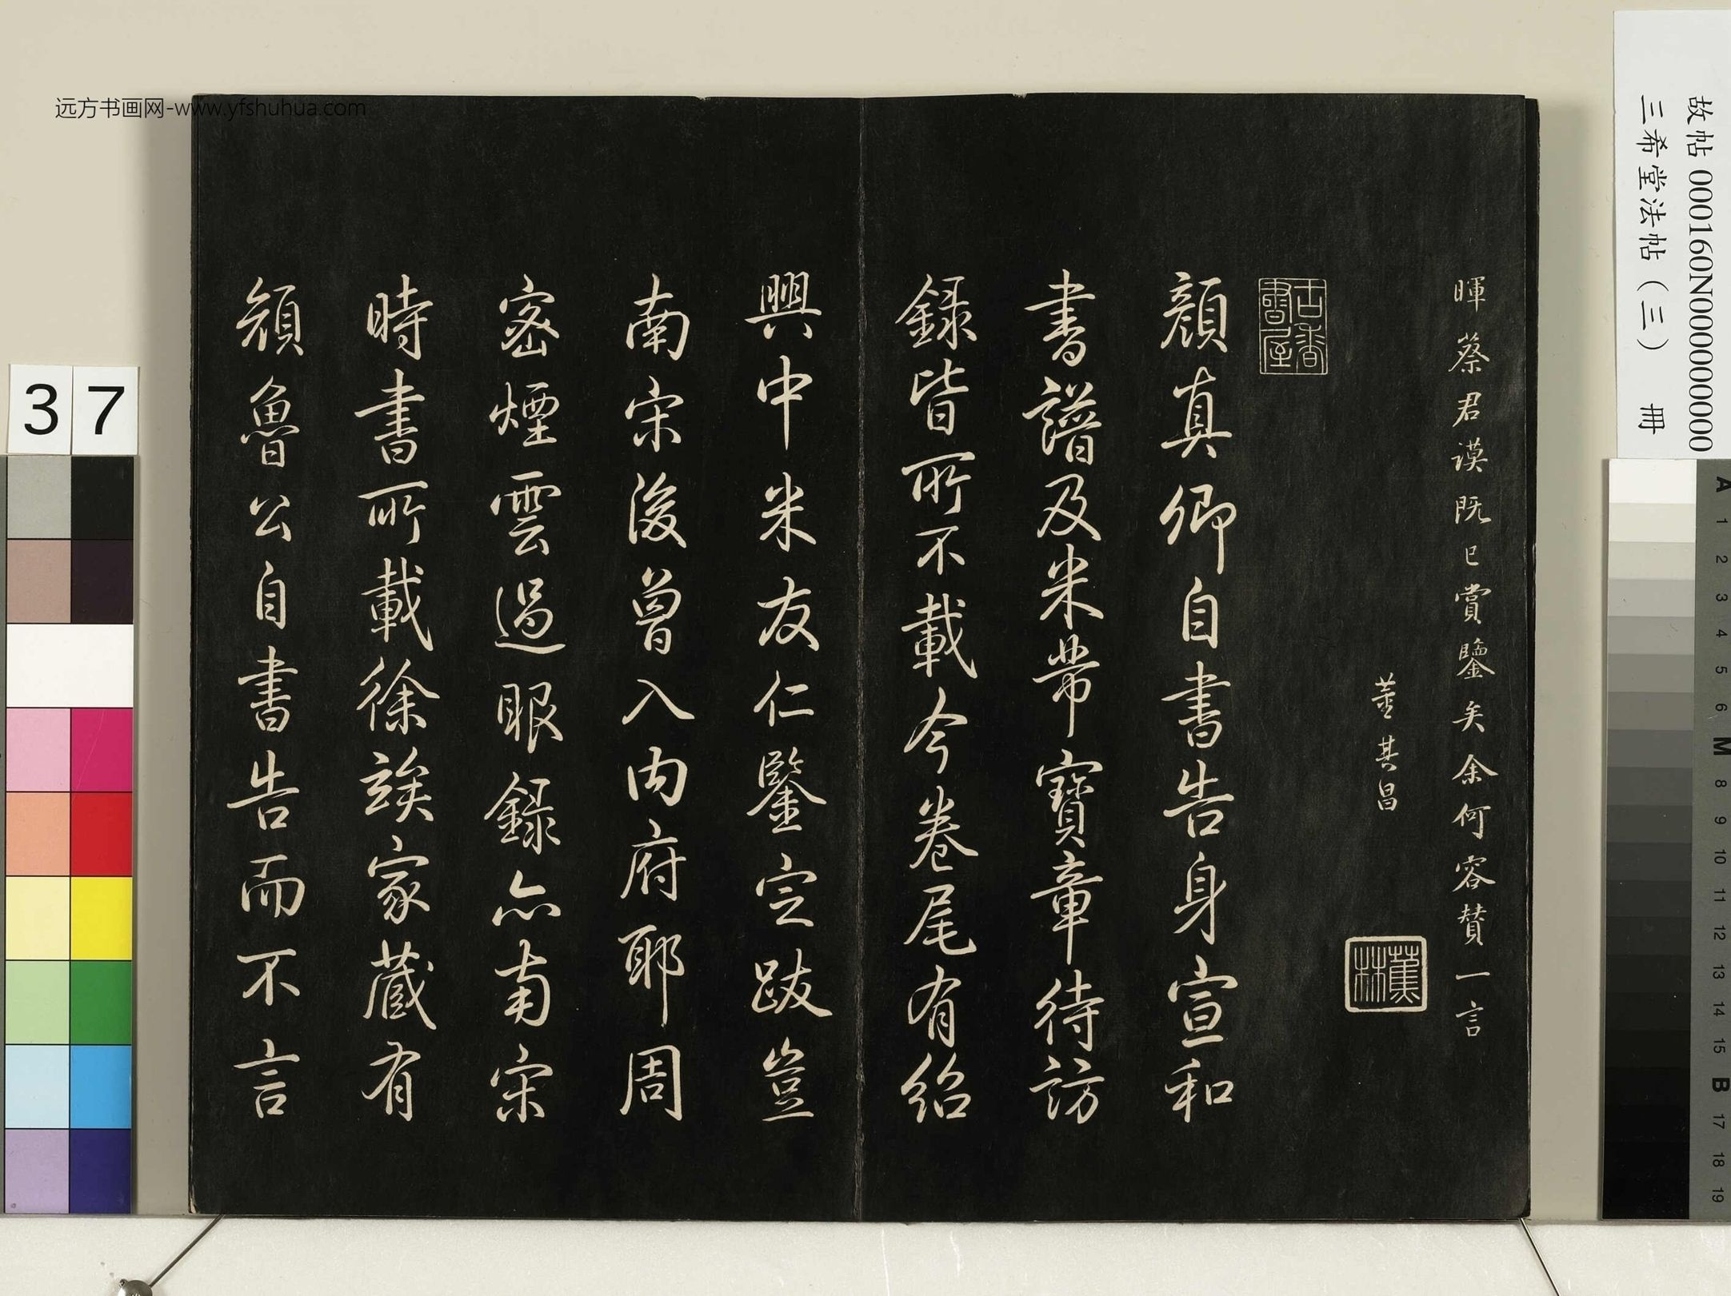 远方书画网-www.yfshuhua.com
故帖 000160N000000000
三希堂法帖（三） 冊
37
暉蔡君謨既已賞鑒矣余何容贊一言
董其昌
蕉林
古香書屋
顏真卿自書告身宣和
書譜及米芾寶章待訪
錄皆所不載今卷尾有紹
興中米友仁鑒定跋豈
南宋後曾入內府耶周
密煙雲過眼錄亦南宋
時書所載徐竢家藏有
顏魯公自書告而不言
A 1 2 3 4 5 6 M 8 9 10 11 12 13 14 15 B 17 18 19